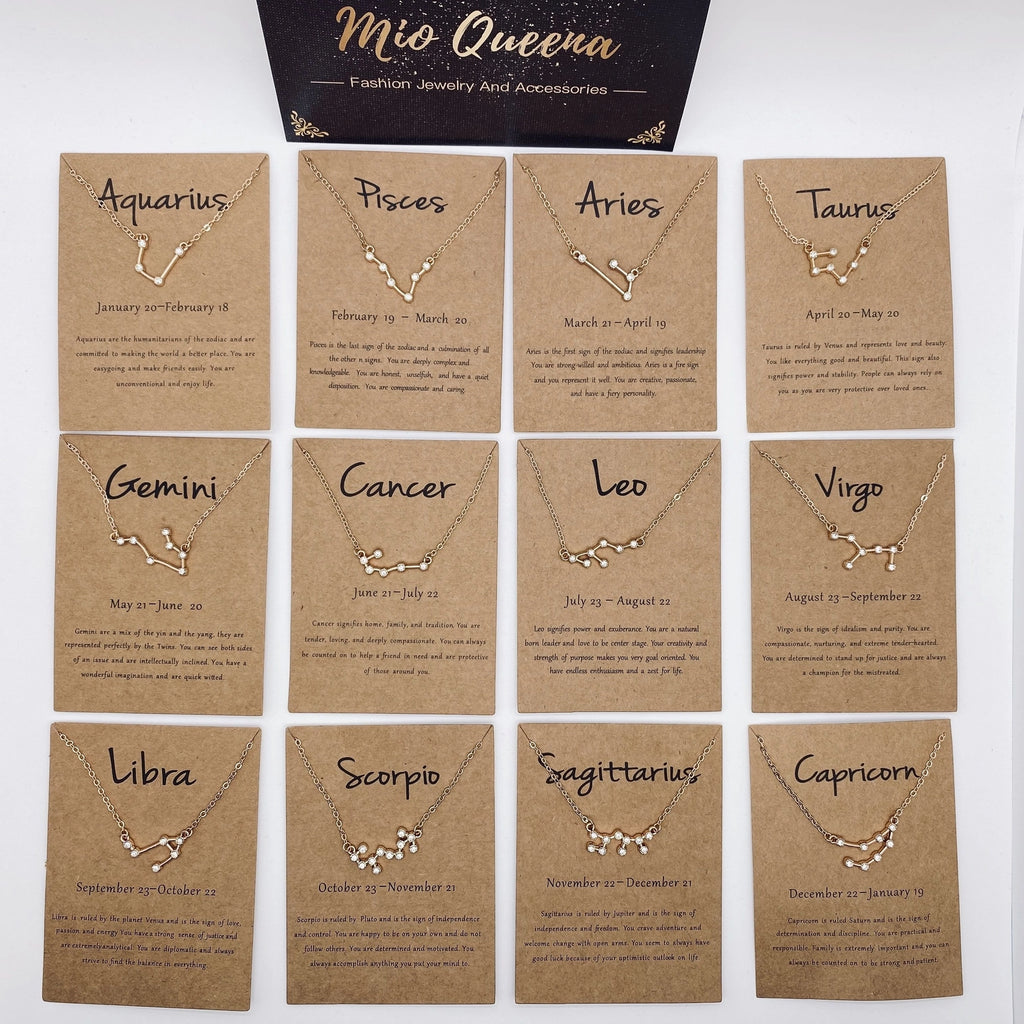 Mio Queena
Fashion Jewelry And Accessories
Aquarius
January 20—February 18
Aquarius are the humanitarians of the zodiac and are
committed to making the world a better place. You are
easygoing and make friends easily. You are
unconventional and enjoy life.
Pisces
February 19 — March 20
Pisces is the last sign of the zodiac and a culmination of all
the other n signs. You are deeply complex and
knowledgeable. You are honest, unselfish, and have a quiet
disposition. You are compassionate and caring.
Aries
March 21—April 19
Aries is the first sign of the zodiac and signifies leadership
You are strong-willed and ambitious. Aries is a fire sign
and you represent it well. You are creative, passionate,
and have a fiery personality.
Taurus
April 20—May 20
Taurus is ruled by Venus and represents love and beauty.
You like everything good and beautiful. This sign also
signifies power and stability. People can always rely on
you as you are very protective over loved ones.
Gemini
May 21—June 20
Gemini are a mix of the yin and the yang, they are
represented perfectly by the Twins. You can see both sides
of an issue and are intellectually inclined. You have a
wonderful imagination and are quick witted.
Cancer
June 21—July 22
Cancer signifies home, family, and tradition. You are
tender, loving, and deeply compassionate. You can always
be counted on to help a friend in need and are protective
of those around you.
Leo
July 23 — August 22
Leo signifies power and exuberance. You are a natural
born leader and love to be center stage. Your creativity and
strength of purpose makes you very goal oriented. You
have endless enthusiasm and a zest for life.
Virgo
August 23—September 22
Virgo is the sign of idealism and purity. You are
compassionate, nurturing, and extreme tender-hearted.
You are determined to stand up for justice and are always
a champion for the mistreated.
Libra
September 23—October 22
Libra is ruled by the planet Venus and is the sign of love,
passion and energy. You have a strong sense of justice and
are extremely analytical. You are diplomatic and always
strive to find the balance in everything.
Scorpio
October 23—November 21
Scorpio is ruled by Pluto and is the sign of independence
and control. You are happy to be on your own and do not
follow others. You are determined and motivated. You
always accomplish anything you put your mind to.
Sagittarius
November 22—December 21
Sagittarius is ruled by Jupiter and is the sign of
independence and freedom. You crave adventure and
welcome change with open arms. You seem to always have
good luck because of your optimistic outlook on life.
Capricorn
December 22—January 19
Capricorn is ruled Saturn and is the sign of
determination and discipline. You are practical and
responsible. Family is extremely important and you can
always be counted on to be strong and patient.